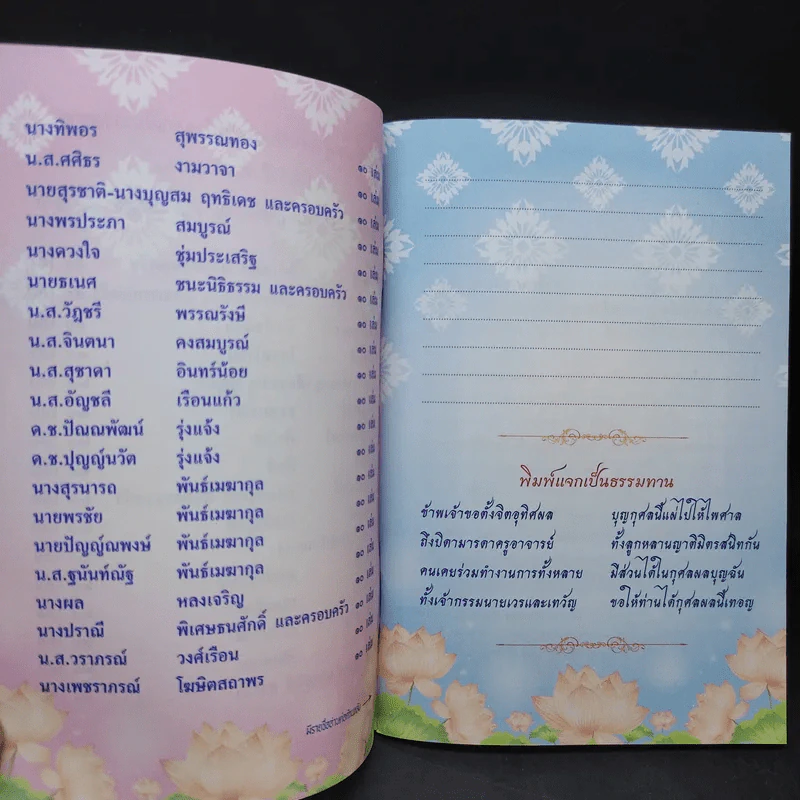 นางทิพอร สุพรรณทอง ๑๐ เล่ม
น.ส.ศศิธร งามวาจา ๑๐ เล่ม
นายสุรชาติ-นางบุญสม ฤทธิเดช และครอบครัว ๑๐ เล่ม
นางพรประภา สมบูรณ์ ๑๐ เล่ม
นางดวงใจ ชุ่มประเสริฐ ๑๐ เล่ม
นายธเนศ ชนะนิธิธรรม และครอบครัว ๑๐ เล่ม
น.ส.วัฎชรี พรรณรังษี ๑๐ เล่ม
น.ส.จินตนา คงสมบูรณ์ ๑๐ เล่ม
น.ส.สุชาดา อินทร์น้อย ๑๐ เล่ม
น.ส.อัญชลี เรือนแก้ว ๑๐ เล่ม
ด.ช.ปัณณพัฒน์ รุ่งแจ้ง ๑๐ เล่ม
ด.ช.ปุญญ์นวัต รุ่งแจ้ง ๑๐ เล่ม
นางสุรนารถ พันธ์เมฆากุล ๑๐ เล่ม
นายพรชัย พันธ์เมฆากุล ๑๐ เล่ม
นายปัญญ์ณพงษ์ พันธ์เมฆากุล ๑๐ เล่ม
น.ส.ฐนันท์ณัฐ พันธ์เมฆากุล ๑๐ เล่ม
นางผล หลงเจริญ ๑๐ เล่ม
นางปราณี พิเศษธนศักดิ์ และครอบครัว ๑๐ เล่ม
น.ส.วราภรณ์ วงศ์เรือน ๑๐ เล่ม
นางเพชราภรณ์ โฆษิตสถาพร
มีรายชื่ออ่านต่อด้านหลัง
พิมพ์แจกเป็นธรรมทาน
ข้าพเจ้าขอตั้งจิตอุทิศผล บุญกุศลนี้แผ่ไปให้ไพศาล
ถึงบิดามารดาครูอาจารย์ ทั้งลูกหลานญาติมิตรสนิทกัน
คนเคยร่วมทำงานการทั้งหลาย มีส่วนได้ในกุศลผลบุญฉัน
ทั้งเจ้ากรรมนายเวรและเทวัญ ขอให้ท่านได้กุศลผลนี้เทอญ